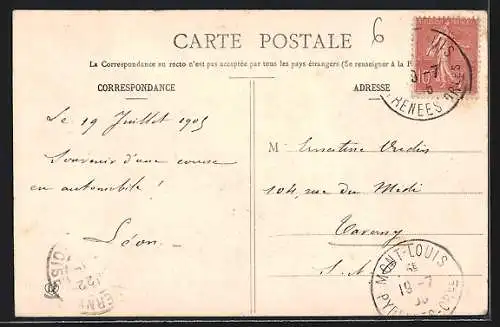 CARTE POSTALE
6
La Correspondance au recto n'est pas acceptée par tous les pays étrangers (Se renseigner à la P
CORRESPONDANCE
ADRESSE
Le 19 Juillet 1905
Souvenir d'une course
en automobile !
Léon
M Ernestine
104, rue du Midi
Taverny
S.
MONT-LOUIS
19-7